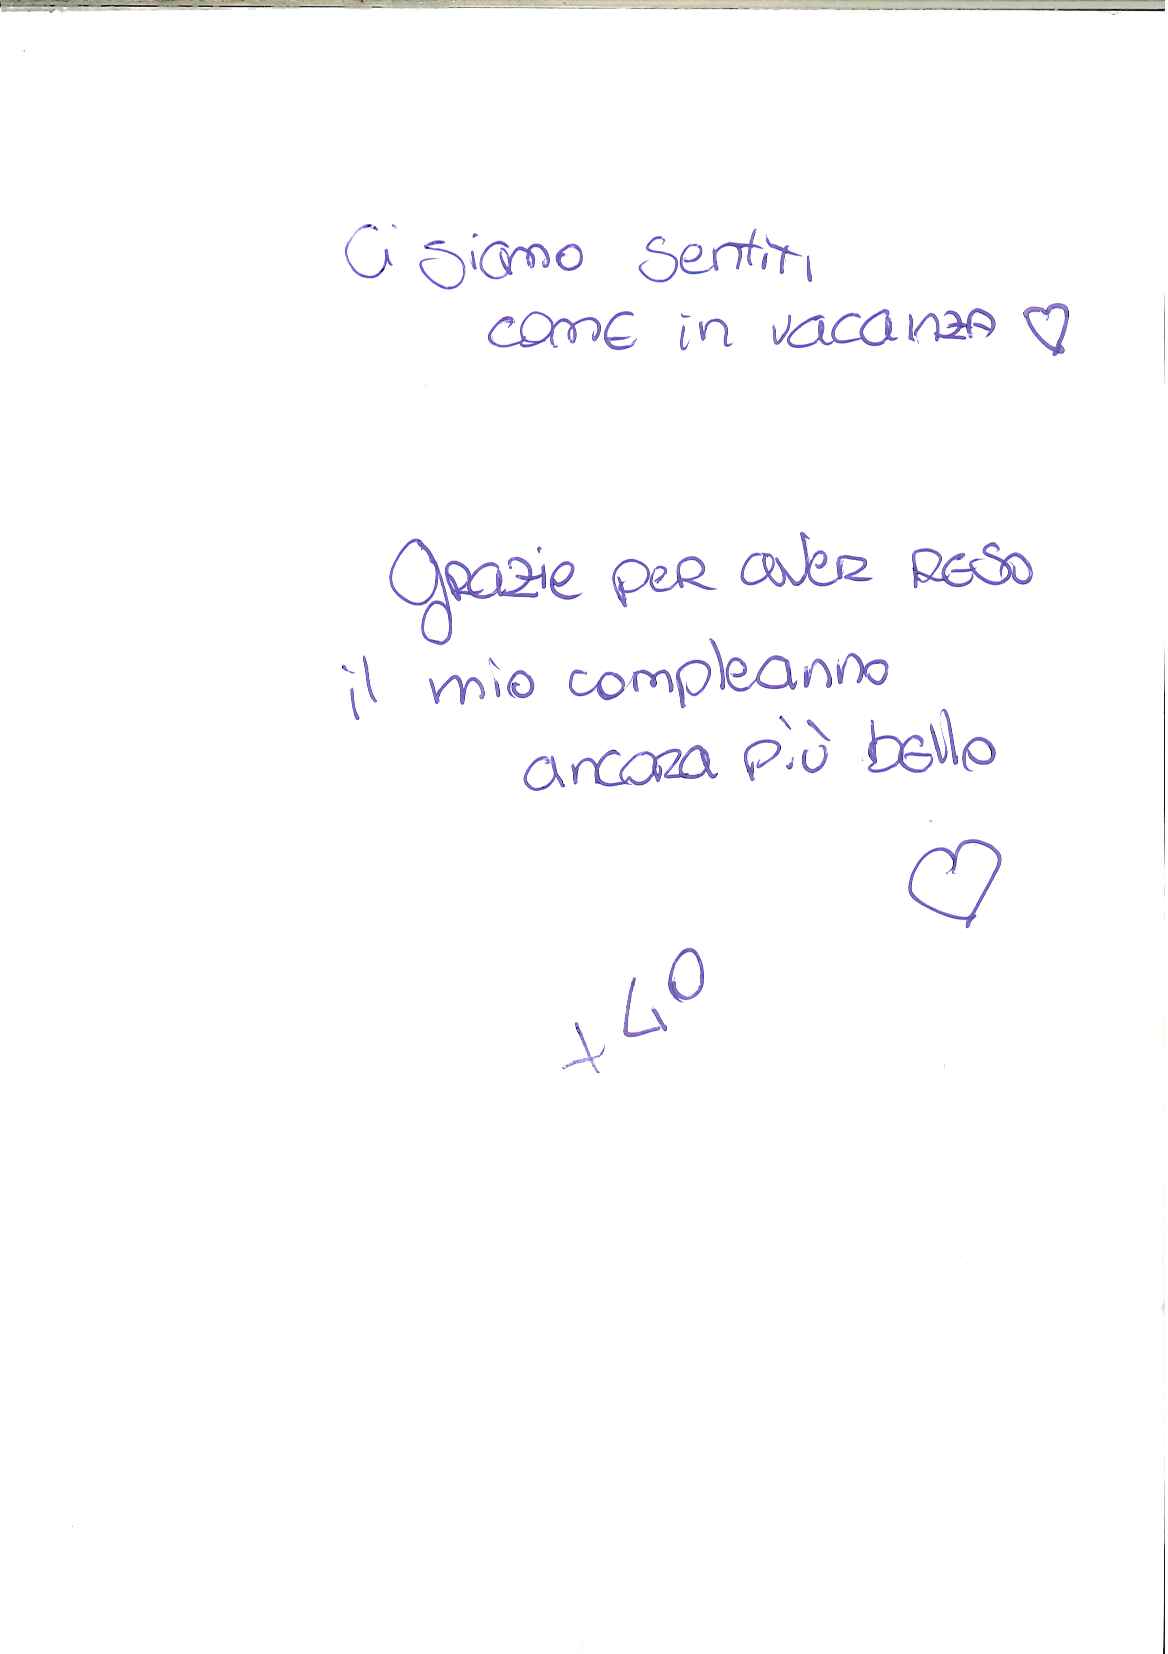 Ci siamo sentiti
come in vacanza ♡
Grazie per aver reso
il mio compleanno
ancora più bello
♡
+40